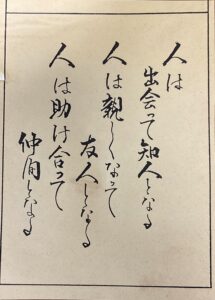 人は
出会って知人となる
人は親しくなって
友人となる
人は助け合って
仲間となる